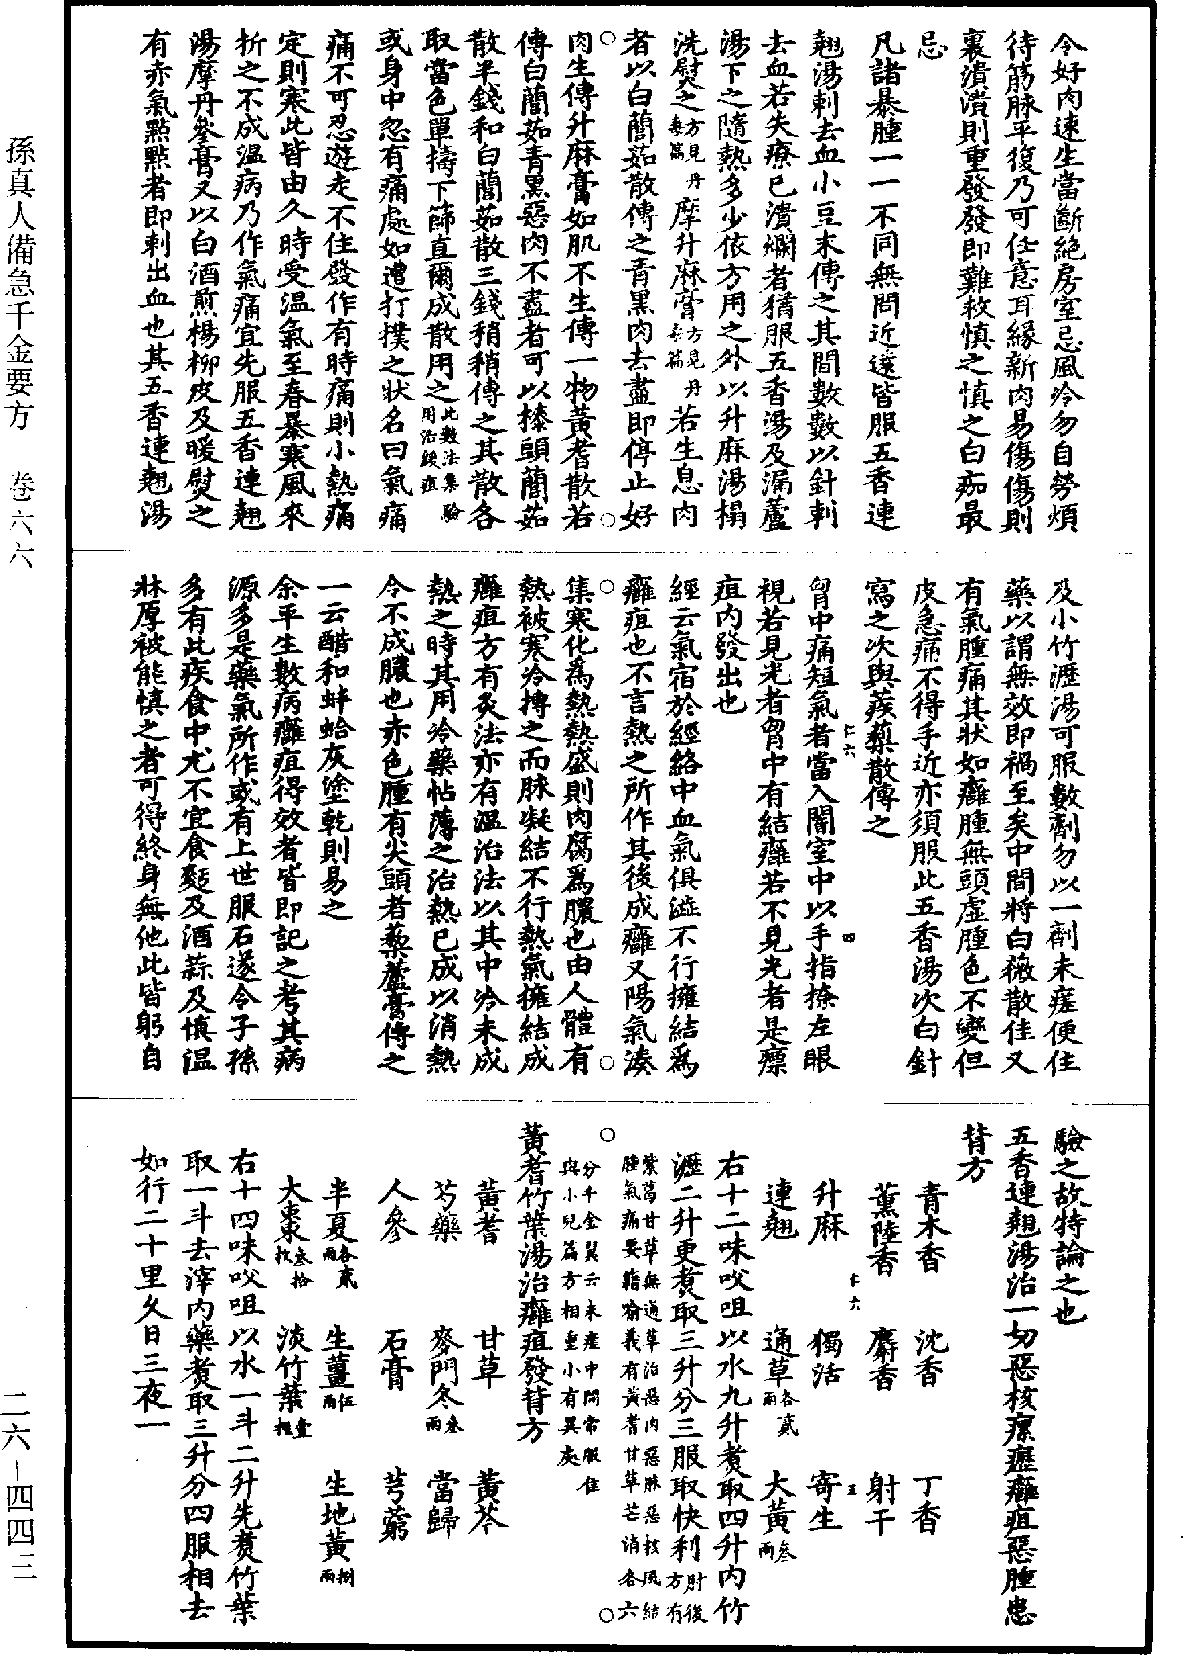 孫真人備急千金要方　卷六六
二六—四四三
令好肉速生當斷絕房室忌風冷勿自勞煩
待筋脉平復乃可任意耳緣新肉易傷傷則
裏潰潰則重發發即難救慎之慎之白痂最
忌
凡諸暴腫一一不同無問近遠皆服五香連
翹湯刺去血小豆末傅之其間數數以針刺
去血若失療已潰爛者猶服五香湯及漏蘆
湯下之隨熱多少依方用之外以升麻湯搨
洗熨之方見丹毒篇摩升麻膏方見丹毒篇若生息肉
者以白䕡茹散傅之青黑肉去盡即停止好
肉生傅升麻膏如肌不生傅一物黃耆散若
傅白䕡茹青黑惡肉不盡者可以漆頭䕡茹
散半錢和白䕡茹散三錢稍稍傅之其散各
取當色單擣下篩直爾成散用之此數法集驗用治緩疽
或身中忽有痛處如遭打撲之狀名曰氣痛
痛不可忍遊走不住發作有時痛則小熱痛
定則寒此皆由久時受温氣至春暴寒風來
折之不成温病乃作氣痛宜先服五香連翹
湯摩丹參膏又以白酒煎楊柳皮及暖熨之
有赤氣點點者即刺出血也其五香連翹湯
及小竹瀝湯可服數劑勿以一劑未瘥便住
藥以謂無效即禍至矣中間將白薇散佳又
有氣腫痛其狀如癰腫無頭虛腫色不變但
皮急痛不得手近亦須服此五香湯次白針
寫之次與蒺䔧散傅之
胷中痛短氣者當入闇室中以手指捺左眼
視若見光者胷中有結癰若不見光者是瘭
疽內發出也
經云氣宿於經絡中血氣俱澁不行擁結為
癰疽也不言熱之所作其後成癰又陽氣湊
集寒化為熱熱盛則肉腐為膿也由人體有
熱被寒冷搏之而脉凝結不行熱氣擁結成
癰疽方有灸法亦有温治法以其中冷未成
熱之時其用冷藥帖薄之治熱已成以消熱
令不成膿也赤色腫有尖頭者藜蘆膏傅之
一云醋和蚌蛤灰塗乾則易之
余平生數病癰疽得效者皆即記之考其病
源多是藥氣所作或有上世服石遂令子孫
多有此疾食中尤不宜食麪及酒蒜及慎温
牀厚被能慎之者可得終身無他此皆躬自
驗之故特論之也
五香連翹湯治一切惡核瘰癧癰疽惡腫患
背方
青木香　沈香　丁香
薰陸香　麝香　射干
升麻　獨活　寄生
連翹　通草各貳兩　大黃叁兩
右十二味㕮咀以水九升煑取四升內竹
瀝二升更煑取三升分三服取快利肘後方有
紫葛甘草無通草治惡肉惡脉惡核風結
腫氣痛要籍喻義有黃耆甘草芒消各六
分千金翼云未瘥中間常服佳
與小兒篇方相重小有異處
黃耆竹葉湯治癰疽發背方
黃耆　甘草　黃芩
芍藥　麥門冬叁兩　當歸
人參　石膏　芎藭
半夏各貳兩　生薑伍兩　生地黃捌兩
大棗叁拾枚　淡竹葉壹握
右十四味㕮咀以水一斗二升先煑竹葉
取一斗去滓內藥煑取三升分四服相去
如行二十里久日三夜一